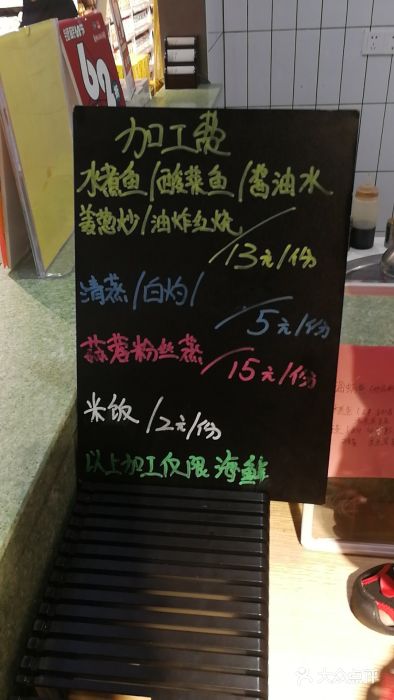 加工费
水煮鱼/酸菜鱼/酱油水
姜葱炒/油炸红烧
/13元/份
清蒸/白灼/
/5元/份
蒜蓉粉丝蒸/15元/份
米饭/2元/份
以上加工仅限海鲜
大众点评